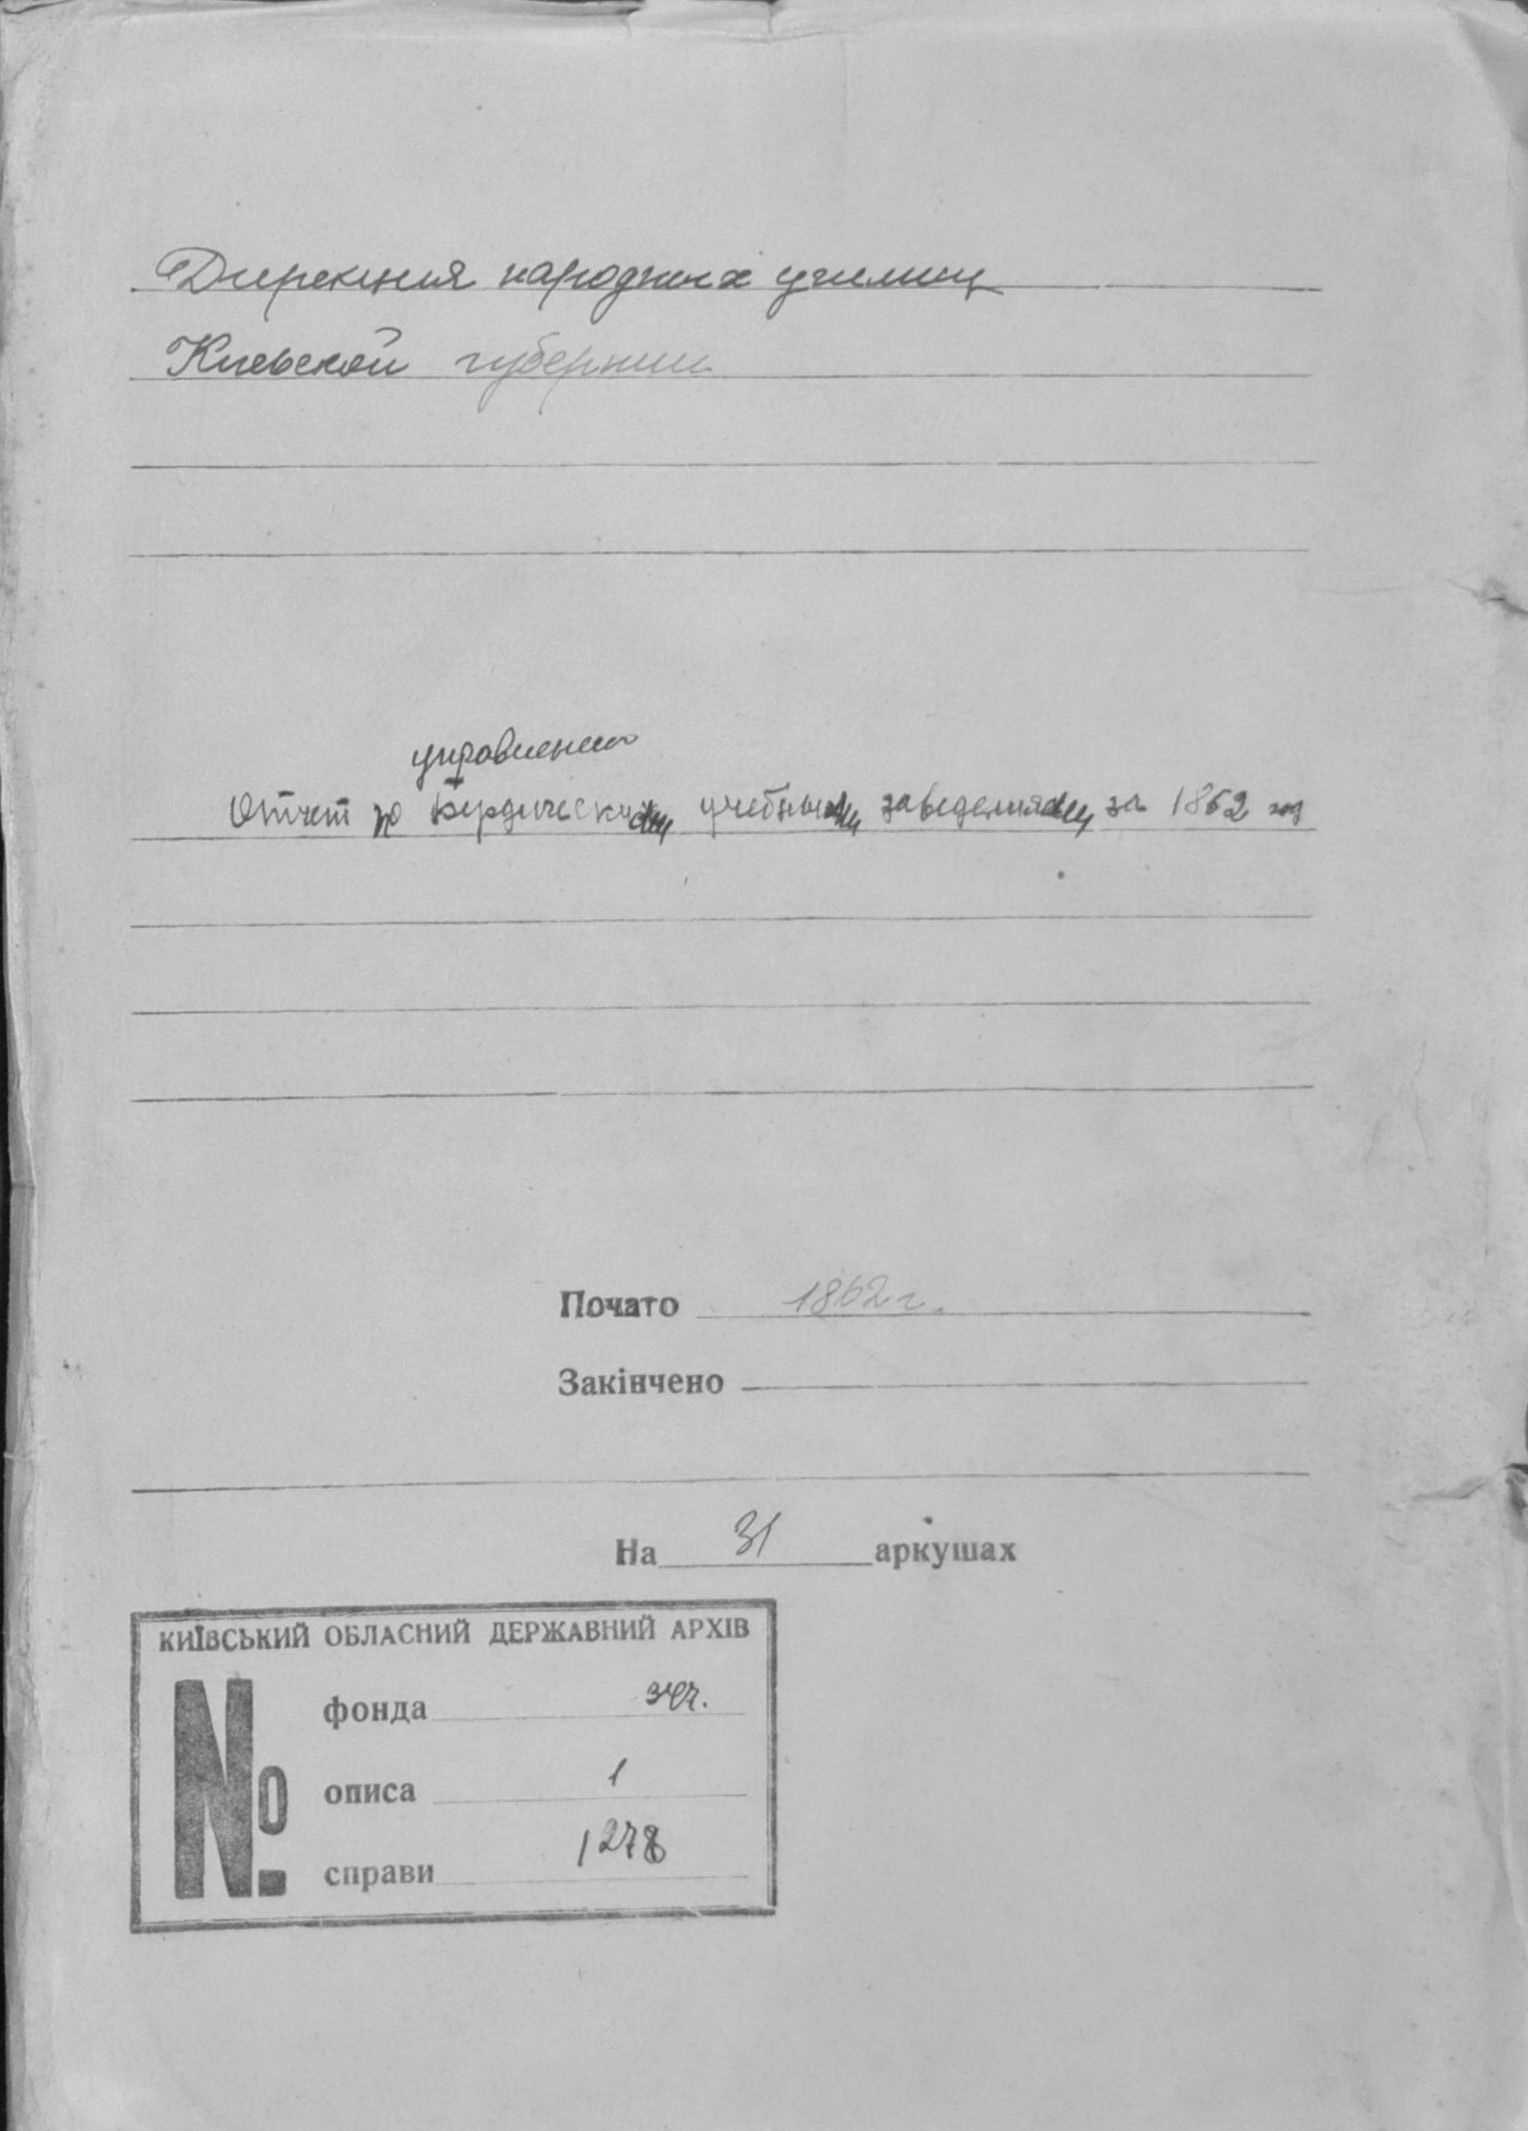 Дирекция народных училищ
Киевской губернии
управлению
Отчет по Бердическими учебными заведениями за 1862 год
Почато 1862 г.
Закінчено
На 31 аркушах
КИЇВСЬКИЙ ОБЛАСНИЙ ДЕРЖАВНИЙ АРХІВ
№ фонда
описа 1
справи 1278